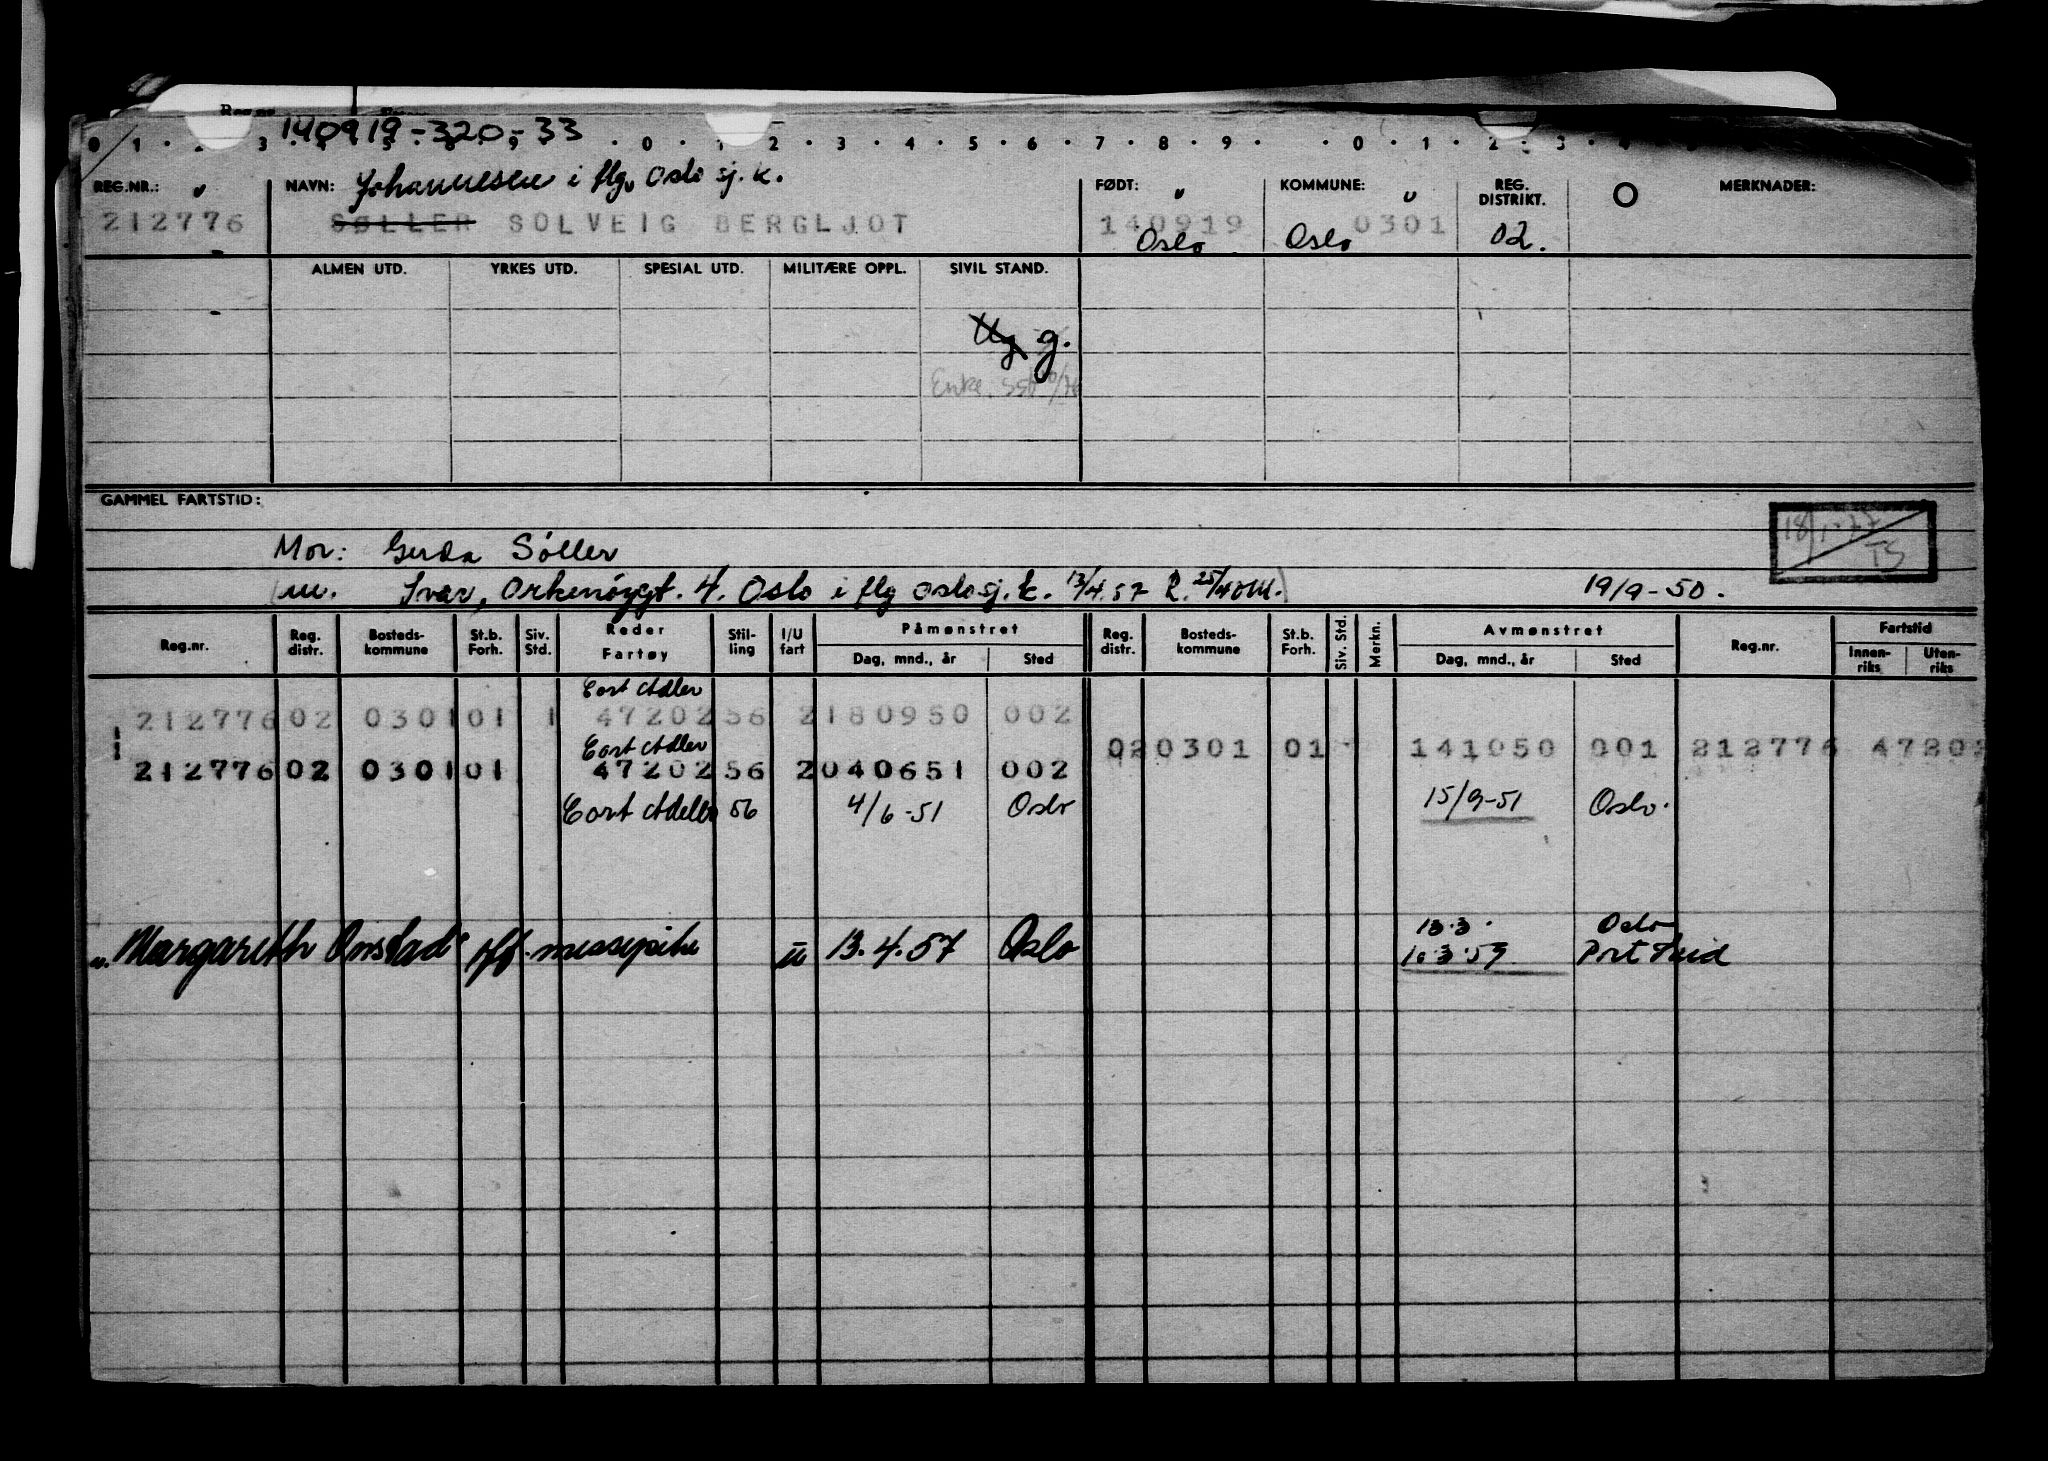 140919-320-33
0 1 . 2 . 3 . 0 . 1 . 2 . 3 . 4 . 5 . 6 . 7 . 8 . 9 . . 0 . 1 . 2 . 3
REG.NR.: NAVN: Johannesen i flg. Oslo sj.k. FØDT: KOMMUNE: REG. DISTRIKT. O MERKNADER:
212776 SØLLER SOLVEIG BERGLJOT 140919 0301
Oslo Oslo 02.
ALMEN UTD. YRKES UTD. SPESIAL UTD. MILITÆRE OPPL. SIVIL STAND.
Ug g.
Enke.
GAMMEL FARTSTID:
18/1-77
TS
Mor: Gerda Søller
m. Ivar, Orkenøygt. 4. Oslo i flg Oslo sj.k. 13/4.57 19/9-50.
Reg.nr. Reg. distr. Bosteds-kommune St.b. Forh. Siv. Std. Reder Fartøy Stil-ling I/U fart Påmønstret Dag, mnd., år Sted Reg. distr. Bosteds-kommune St.b. Forh. Siv. Std. Merkn. Avmønstret Dag, mnd., år Sted Reg.nr. Fartstid Innen-riks Uten-riks
Cort Adler
212776 02 0301 01 1 47202 56 2 180950 002
Cort Adler
02 0301 01 141050 001 212776 4720
212776 02 0301 01 47202 56 2 040651 002
Cort Adeler 56 4/6-51 Oslo 15/9-51 Oslo.
13.3. Oslo
"Margareth Onstad" messepike u 13.4.57 Oslo Port Said